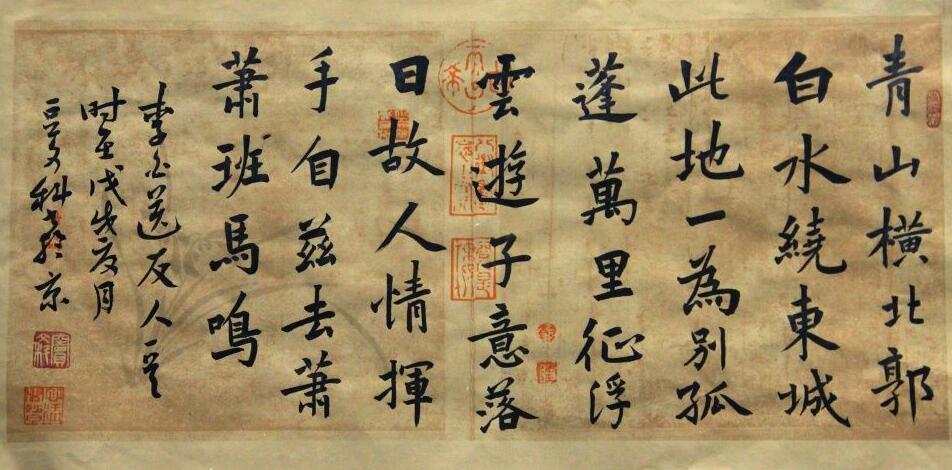 青山橫北郭
白水繞東城
此地一為別孤
蓬萬里征浮
雲遊子意落
日故人情揮
手自茲去蕭
蕭班馬鳴
李白送友人一首
时在戊戌夏月
文科於京